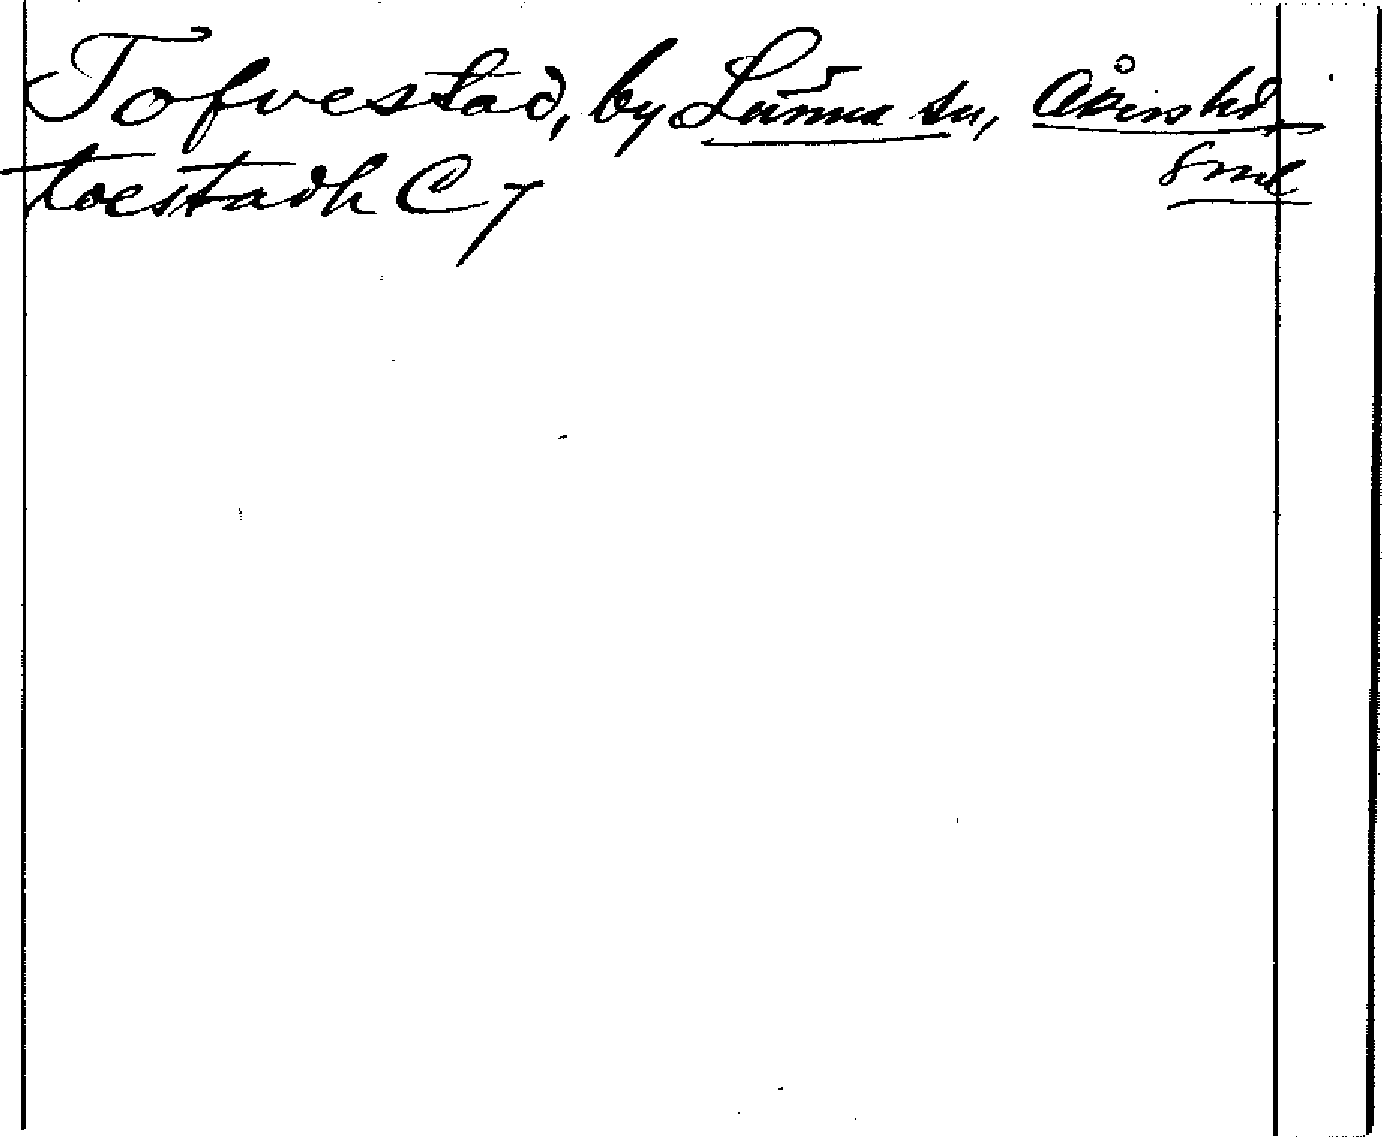 Tofvestad, by Lünna sn, Åkers hd
Sml
toestadh C 7